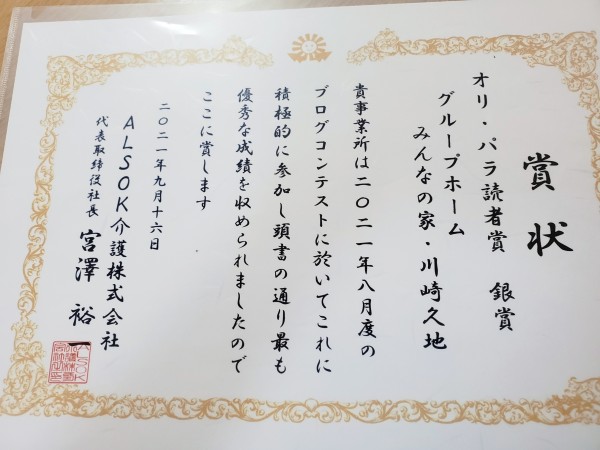 賞状
オリ・パラ読者賞 銀賞
グループホーム
みんなの家・川崎久地
貴事業所は二〇二一年八月度の
ブログコンテストに於いてこれに
積極的に参加し頭書の通り最も
優秀な成績を収められましたので
ここに賞します
二〇二一年九月十六日
ALSOK介護株式会社
代表取締役社長 宮澤裕一